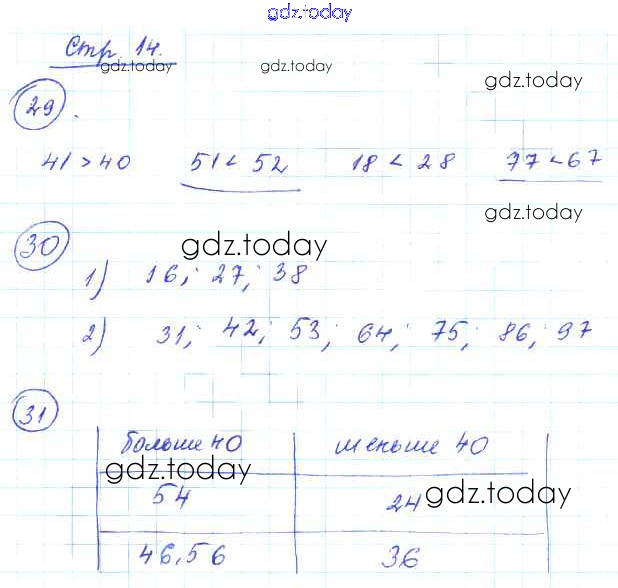 gdz.today
Стр. 14.
gdz.today gdz.today gdz.today
29.
41 > 40 51 < 52 18 < 28 77 < 67
gdz.today
30
gdz.today
1) 16; 27; 38
2) 31; 42; 53; 64; 75; 86; 97
31
больше 40 меньше 40
gdz.today
54 24
gdz.today
46,56 36